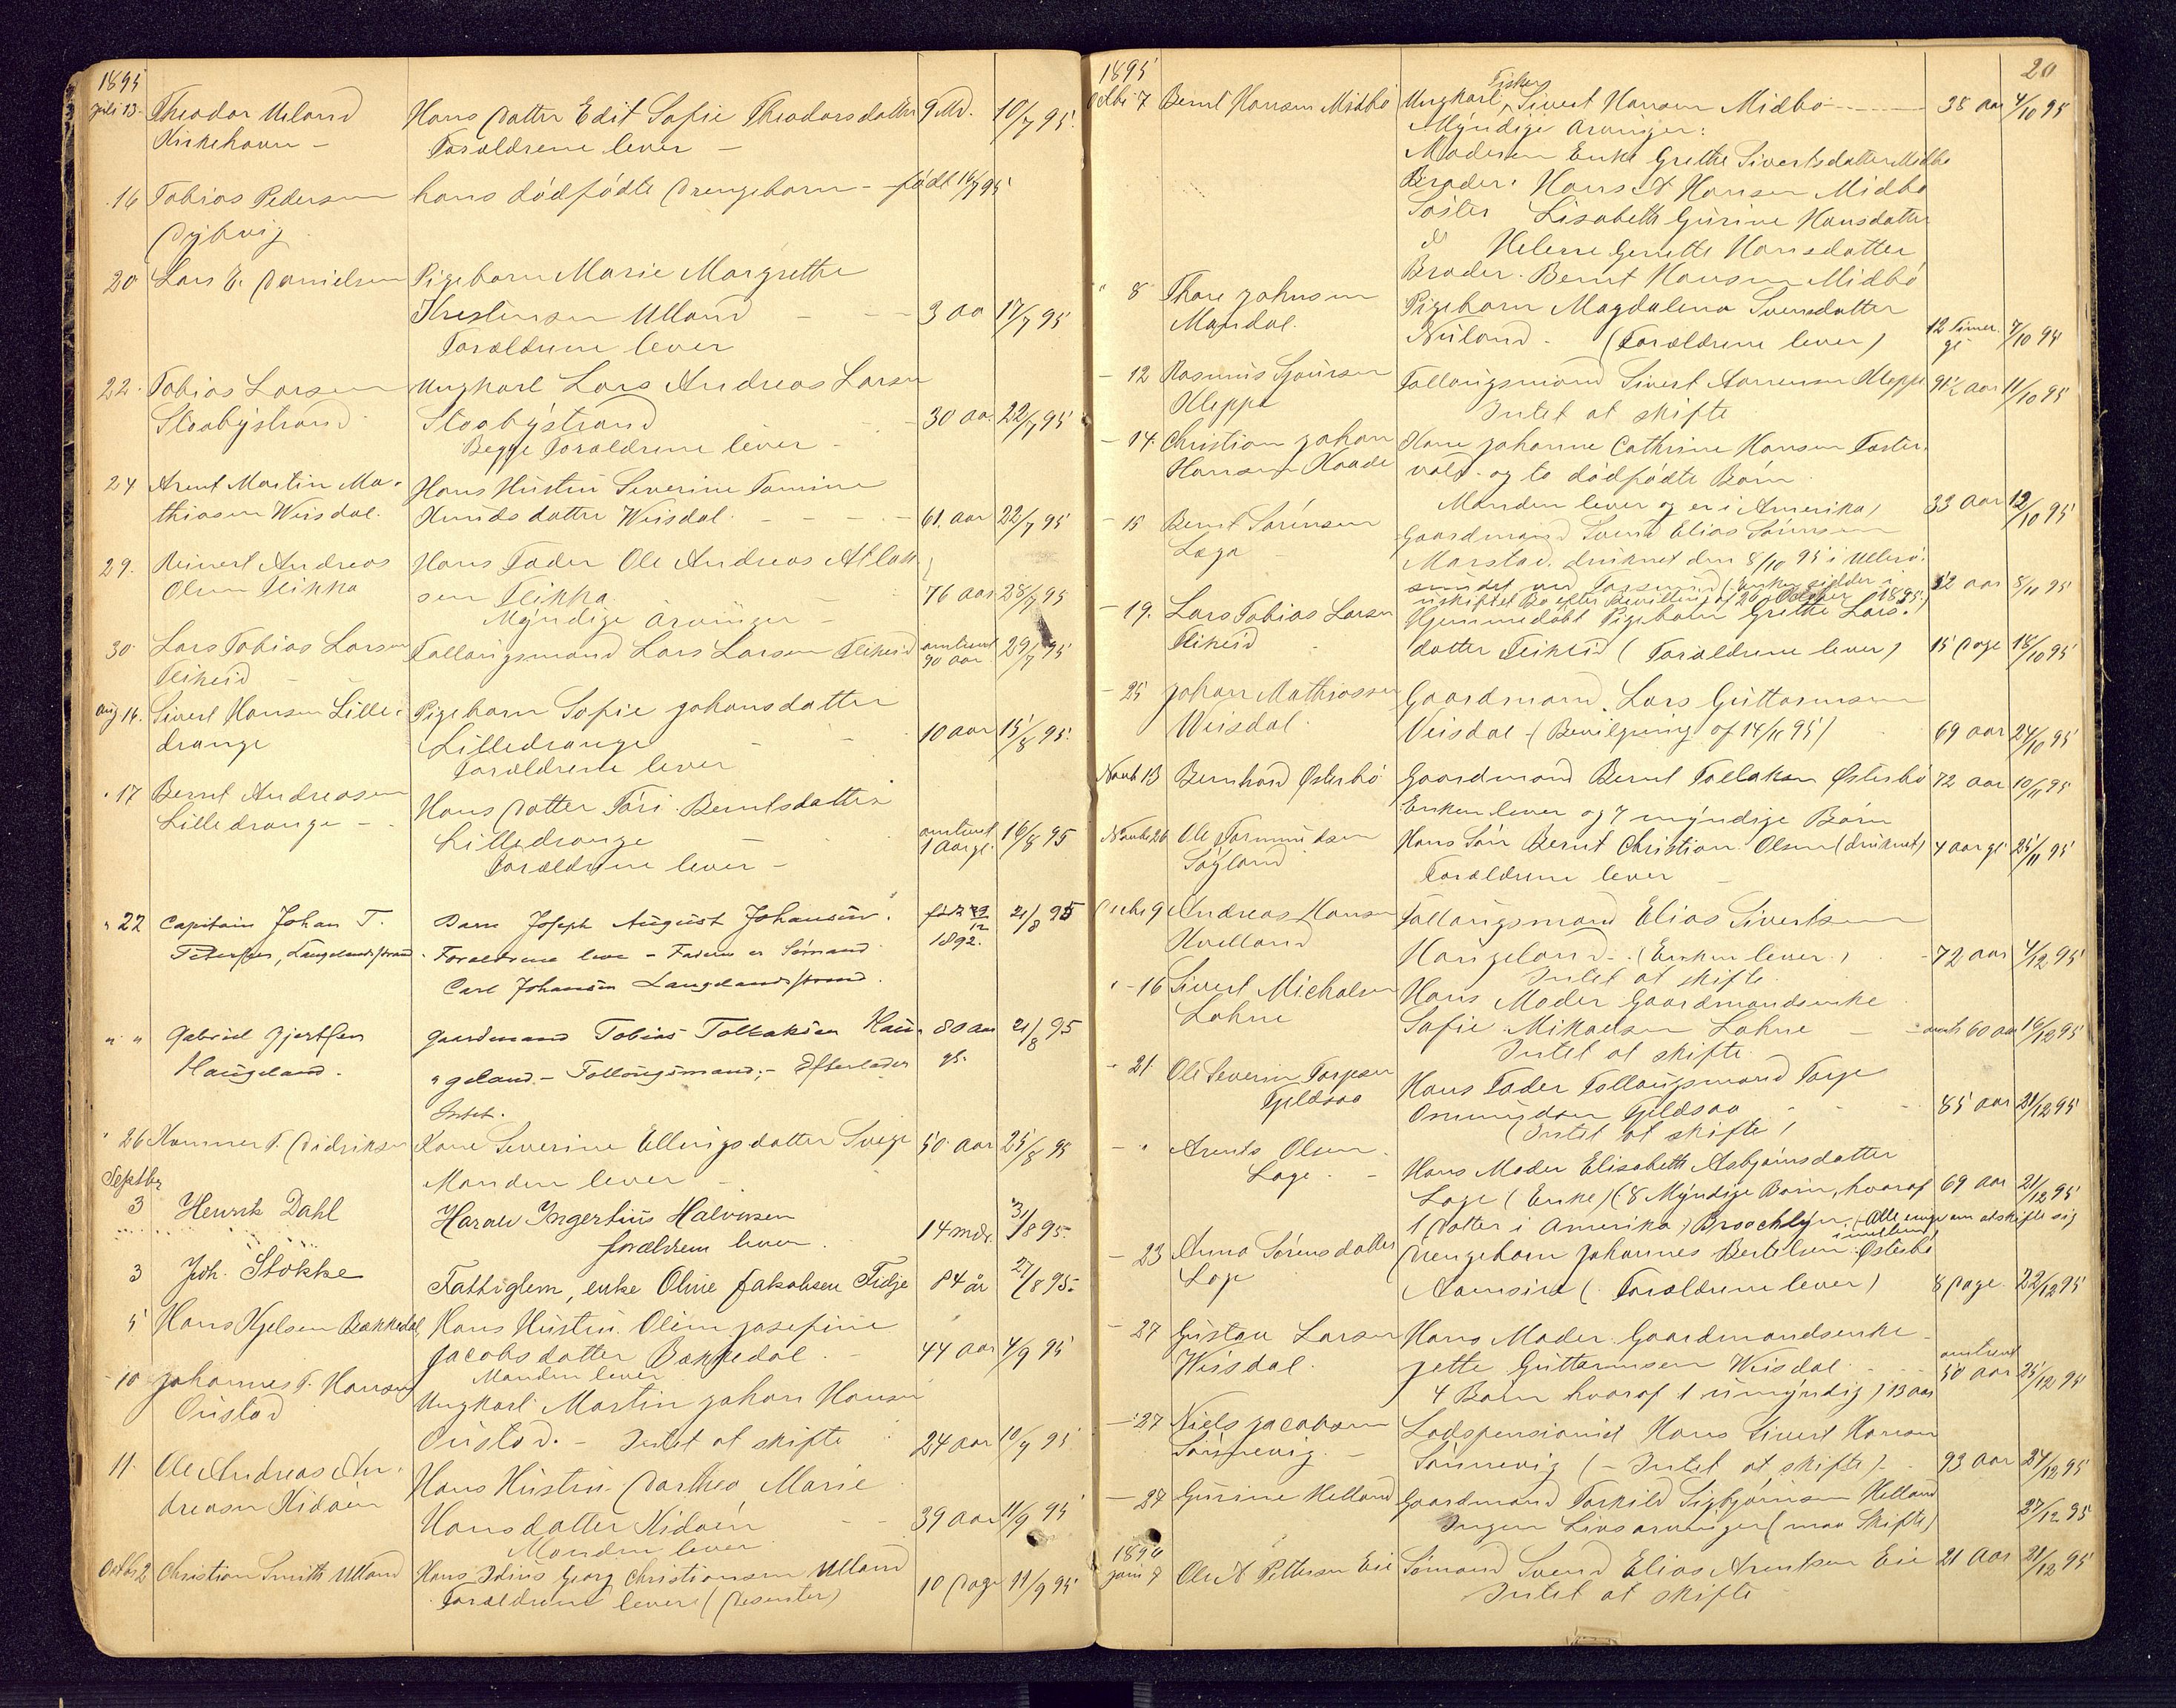 1895
Juli 13. Theodor Uland Hans Datter Edit Sofie Theodorsdatter 9 Md. 10/7 95.
Kirkehavn – Foraldrene lever –
16 Tobias Pedersen hans dödfödte Drengebarn – födt 16/7 95
Dybvig
20 Lars E. Danielsen Pigebarn Marie Margrethe
Kristensen Ulland – – 3 aa 17/7 95
Foraldrene lever
22. Tobias Larsen Ungkarl Lars Andreas Larsen
Stoobystrand Stoobystrand – 30 aa. 22/7 95
Begge Foraldrene lever –
24 Arent Martin Ma- Hans Hustru Severine Tomine
thiasen Veisdal. Knudsdatter Veisdal. – – – 61. aar 22/7 95
29. Reinert Andreas Hans Fader Ole Andreas Atlak
Olsen Flikka sen Flikka – 76 aar 28/7 95
Myndige Arvinger –
30 Lars Tobias Larsen Follaugsmand Lars Larsen Flikeid omtrent 90 aar 29/7 95
Flikeid –
Aug 16. Sivert Hansen Lille- Pigebarn Sofie Johansdatter
drange Lilledrange – – 10 aar 15/8 95.
Foraldrene lever
" 17 Bernt Andreasen Hans Datter Tori Berntsdatter
Lilledrange – Lilledrange – omtrent 1 Aar gl. 16/8 95
Foraldrene lever –
" 22 Capitain Johan T. Barn Joseph August Johansen. 21/8 95
Petersen, Langelandsstrand. Foraldrene leve – Faderen er Sömand 1892.
Carl Johansen Langelandsstrand.
" " Gabriel Gjertsen Gaardmand Tobias Tollaksen Hau- 80 aar 21/8 95
Haugeland. geland. – Follougsmand; – Efterlader gl.
Intet.
" 26 Kammer T. Didriksen Kone Severine Ellingsdatter Svege 50 aar 25/8 95
Manden lever –
Septbr
3 Henrik Dahl Harald Ingertius Halvorsen 14 mdr. 31/8 95.
forældren lever.
3 Joh. Stokke Fattiglem, enke Oline Jakobsen Tidje 84 år 27/8 95.
5 Hans Kjelsen Bakkedal Hans Hustru Oline Josefine
Jacobsdatter Bakkedal. – 44 aar 4/9 95
Manden lever
10 Johannes T. Hansen Ungkarl Martin Johan Hansen
Oustad Oustad. – Intet at skifte 24 aar 10/9 95
11. Ole Andreas An- Hans Hustru Dorthea Marie
dreasen Hidøen Hansdatter Hidøen – – 39 aar 11/9 95
Manden lever
Octbr 2 Christian Smith Ulland Hans Julius Georg Christiansen Ulland 10 Dage 11/9 95
Foraldrene lever (Desenter)
1895 20
Octbr 7 Bernt Hansen Midbö Ungkarl, Fisker Sivert Hansen Midbö – 35 aar 4/10 95
Myndige Arvinger:
Moderen Enke Grethe Sivertsdatter Midbö
Broder. Hans A Hansen Midbö
Söster Lisabeth Gurine Hansdatter
do Helene Genette Hansdatter
Broder. Bernt Hansen Midbö
" 8 Thore Johnsen Pigebarn Magdalena Svensdatter
Mandal. Nuland. – (Foraldrene lever) 12 Timer gl 7/10 94
– 12 Rasmus Sjoursen Follaugsmand Sivert Aanensen Kleppe 91½ aar 11/10 95
Kleppe Intet at skifte
– 14. Christian Johan Kone Johanne Cathrine Hansen Foster-
Hansen Haade vold. og to dödfödte Börn
Manden lever og er i Amerika) 33 aar 12/10 95
– 15 Bernt Sörensen Gaardmand Svend Elias Sörensen
Løga – Marstad. druknet den 8/10 95 i Ullerö-
sundet ved (Enken sidder i 52 aar 8/11 95
uskiftet Bo efter Bevilling af 26 October 1895.)
– 19. Lars Tobias Larsen Hjemmedöbt Pigebarn Grethe Lars-
Flikeid datter Flikeid (Foraldrene lever) 15 Dage 18/10 95
– 25 Johan Mathiassen Gaardmand. Lars Guttormsen
Veisdal. Veisdal – (Bevilgning af 14/11 95) 69 aar 24/10 95
Novb 13 Bernhard Østerbö Gaardmand Bernt Tollaksen Østerbö 72 aar 10/11 95
Enken lever og 7 myndige Børn
Novbr 26 Ole Tormundsen Hans Sön Bernt Christian Olsen (druknet) 4 aar gl 25/11 95
Sögland Foraldrene lever –
Decbr 9 Andreas Hansen Follaugsmand Elias Sivertsen
Kvelland Haugeland – (Enken lever.) – 72 aar 4/12 95
Intet at skifte
" – 16 Sivert Michalsen Hans Moder Gaardmandsenke
Lohne Sofie Mikaelsen Lohne – – omtr 60 aar 16/12 95
Intet at skifte
– 21 Ole Severin Torgesen Hans Fader Follaugsmand Torge
Gjeldsaa Osmundsen Gjeldsaa – – 85 aar 21/12 95
(Intet at skifte)
– " Arents Olsen Hans Moder Elisabeth Asbjörnsdatter
Loge. – Loge (Enke) (8 Myndige Börn, hvoraf 69 aar 21/12 95
1 Datter i Amerika) Broochlyn. (Alle enige om at skifte sig imellem)
– 23 Anna Sörensdatter Drengebarn Johannes Bertelsen Østebö
Loge Aamsira (Foraldrene lever) 8 Dage 22/12 95
– 27 Gustav Larsen Hans Moder Gaardmandsenke
Veisdal. Jette Guttormsen Veisdal – omtrent 50 aar 25/12 95
4 Børn hvoraf 1 umyndig) 13 aar
– 27 Niels Jacobsen Lodspensionist Hans Sivert Hansen
Sönnevig. – Sönnevig (– Intet at skifte) – 93 aar 24/12 95
– 27 Gurine Helland Gaardmand Torkild Sigbjörnsen Helland
Ingen Livsarvinger (maa Skifte) 27/12 95
1896
Jan 7 Ole A Pettersen Eie Sömand Svend Elias Arentsen Eie 21 Aar 21/12 95
Intet at skifte